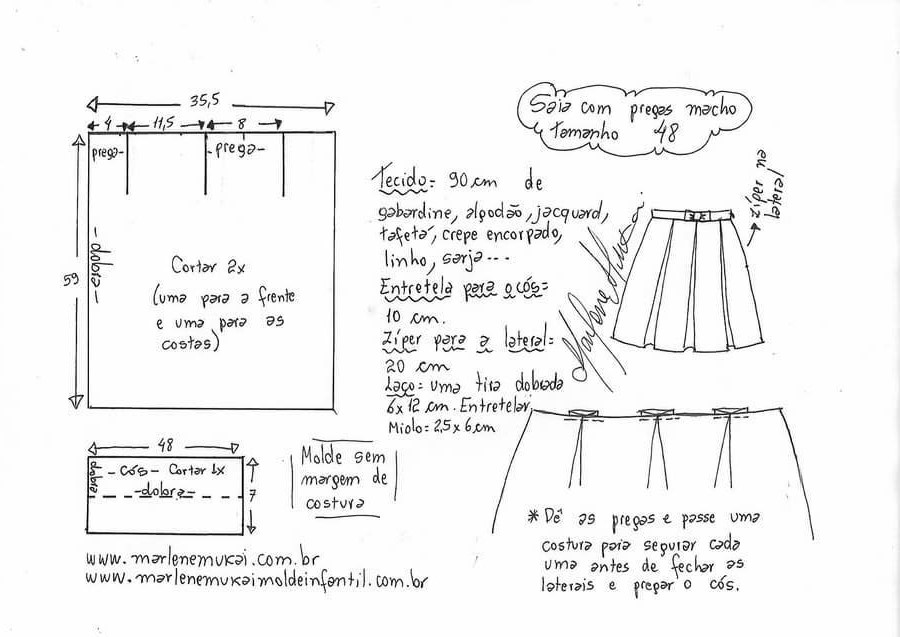 Saia com pregas macho
tamanho 48
35,5
4
11,5
8
prega
prega
59
dobra
Cortar 2x
(uma para a frente
e uma para as
costas)
Tecido: 90 cm de
gabardine, algodão, jacquard,
tafetá, crepe encorpado,
linho, sarja...
Entretela para o cós:
10 cm.
Zíper para a lateral:
20 cm
Laço: uma tira dobrada
6x12 cm. Entretelar
Miolo: 2,5 x 6 cm
Zíper na
lateral
Marlene Mukai
48
dobra
-cós- Cortar 1x
-dobra-
7
Molde sem
margem de
costura
* Dê as pregas e passe uma
costura para segurar cada
uma antes de fechar as
laterais e pregar o cós.
www.marlenemukai.com.br
www.marlenemukaimoldeinfantil.com.br